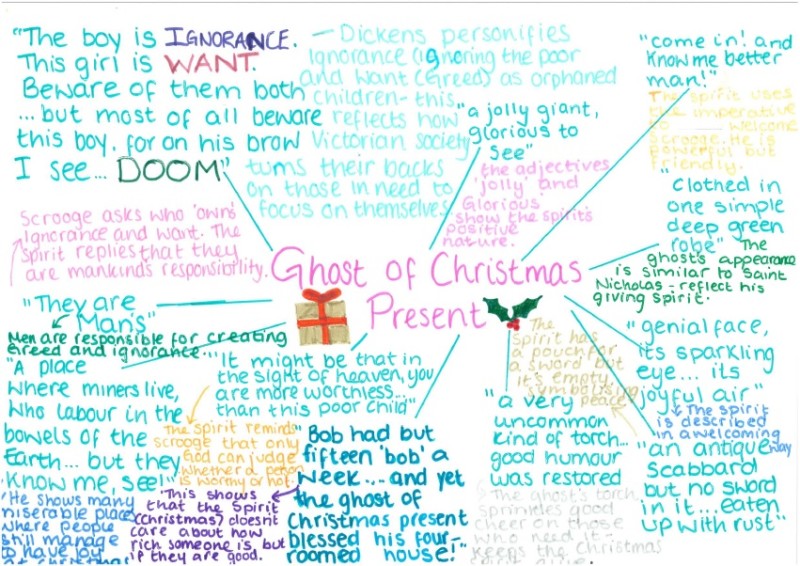 "The boy is IGNORANCE.
This girl is WANT.
Beware of them both
...but most of all beware
this boy, for on his brow
I see... DOOM"
- Dickens personifies
Ignorance (ignoring the poor
and Want (Greed) as orphaned
children - this
reflects how
Victorian society
turns their backs
on those in need to
focus on themselves.
"come in! and
Know me better
man!"
The spirit uses
the imperative
to welcome
Scrooge. He is
powerful but
friendly.
"a jolly giant,
glorious to
see"
the adjectives
'jolly' and
'Glorious'
show the spirit's
positive
nature.
"Clothed in
one simple
deep green
robe" The
ghost's appearance
is similar to Saint
Nicholas - reflect his
giving spirit.
Scrooge asks who 'owns'
Ignorance and want. The
Spirit replies that they
are mankind's responsibility.
Ghost of Christmas
Present
"They are
Man's"
Men are responsible for creating
Greed and ignorance...
"A place
where miners live,
who labour in the
bowels of the
Earth... but they
Know me, see!"
'He shows many
miserable places
where people
still manage
to have joy
at christmas
"It might be that in
the sight of heaven, you
are more worthless...
than this poor child"
The spirit reminds
scrooge that only
God can judge
whether a person
is worthy or not.
"Bob had but
fifteen 'bob' a
week.... and yet
the ghost of
Christmas present
blessed his four-
roomed house!"
'This shows
that the Spirit
(Christmas) doesn't
care about how
rich someone is, but
if they are good.
The
Spirit has
a pouch for
a sword but
it's empty
symbolising
peace
"a very
uncommon
kind of torch...
good humour
was restored
The ghost's torch
sprinkles good
cheer on those
who need it -
keeps the Christmas
spirit alive.
"genial face,
its sparkling
eye... its
joyful air"
The spirit
is described
in a welcoming
way
"an antique
scabbard
but no sword
in it...eaten
up with rust"